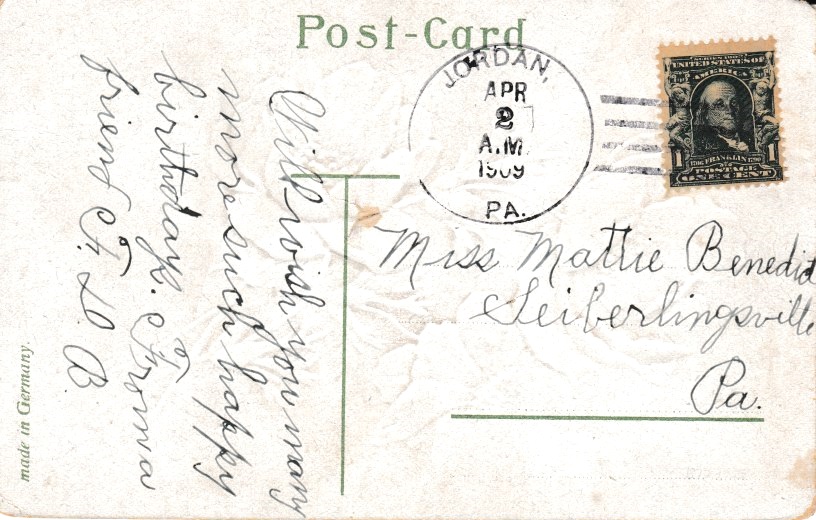 Post-Card
JORDAN,
APR
2
A.M.
1909
PA.
UNITED STATES OF
AMERICA
FRANKLIN
POSTAGE
1 ONE CENT 1
Miss Mattie Benedict
Seiberlingsville
Pa.
Will wish you many
more such happy
birthdays. From a
friend F. D. B.
made in Germany.